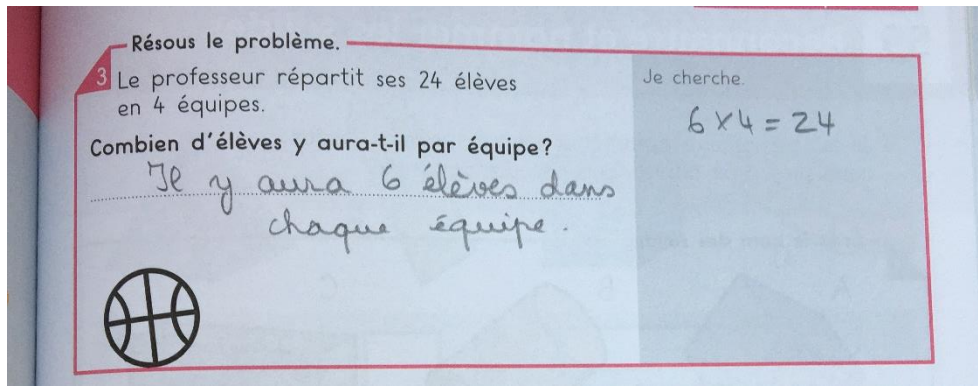 Résous le problème.
3 Le professeur répartit ses 24 élèves
en 4 équipes.
Combien d'élèves y aura-t-il par équipe?
Il y aura 6 élèves dans
chaque équipe.
Je cherche.
6 × 4 = 24